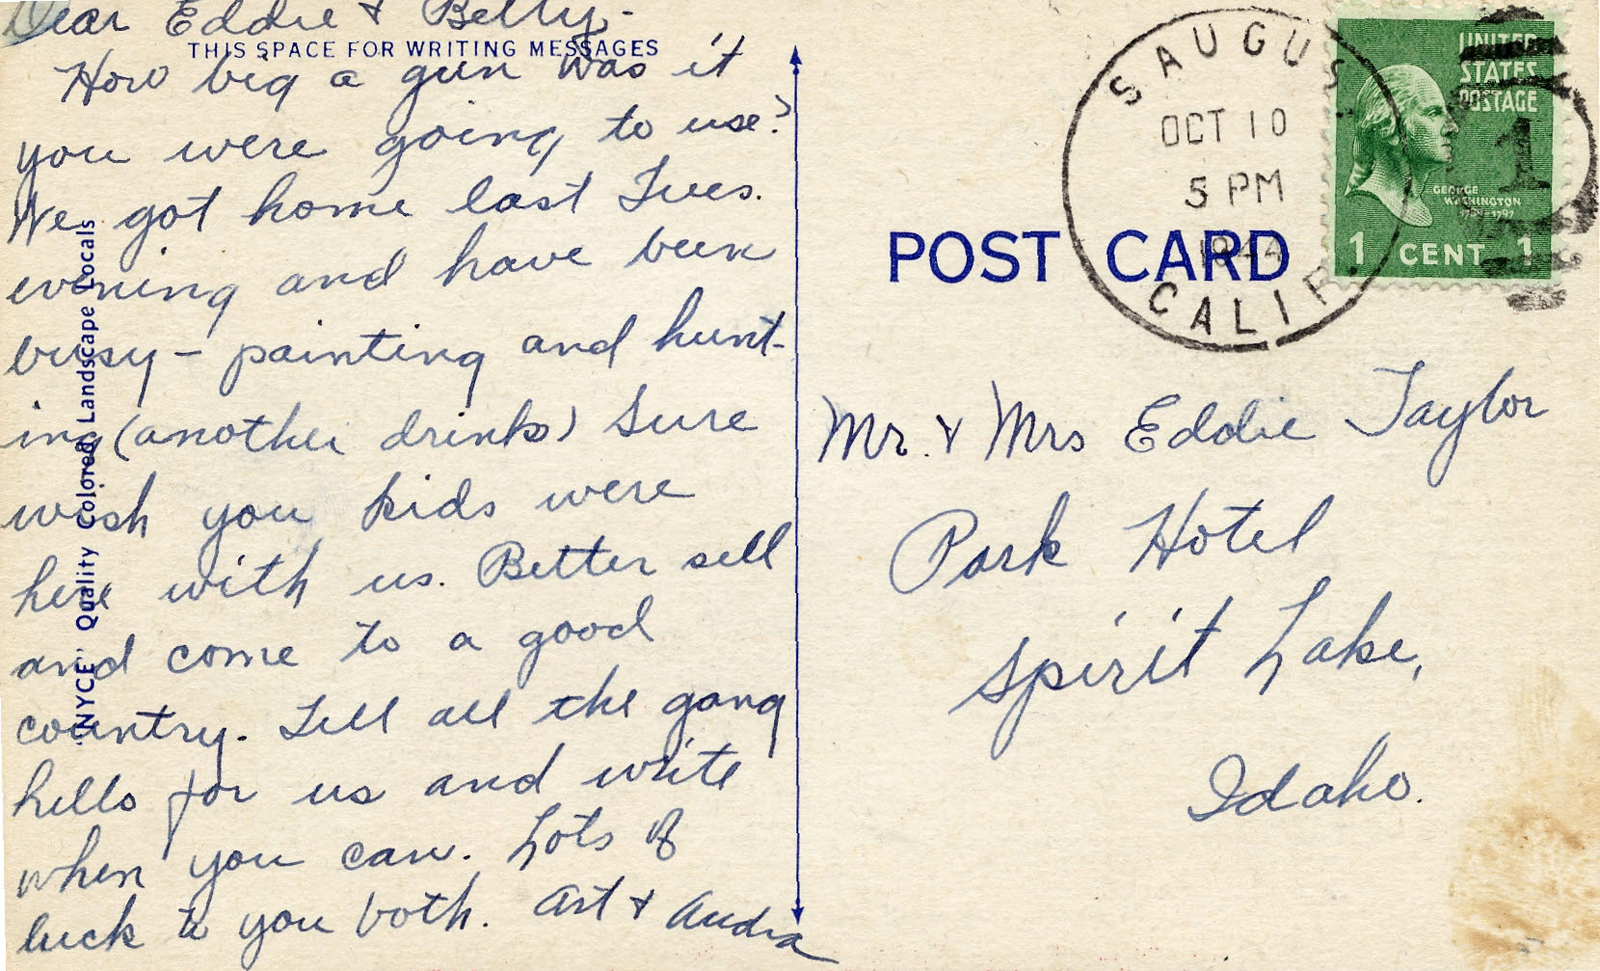 Dear Eddie & Betty -
THIS SPACE FOR WRITING MESSAGES
How big a gun was it
you were going to use?
We got home last Tues.
evening and have been
busy - painting and hunt-
ing (another drink) Sure
wish you kids were
here with us. Better sell
and come to a good
country. Tell all the gang
hello for us and write
when you can. Lots of
luck to you both. Art & Audra
"NYCE" Quality Colored Landscape Locals
POST CARD
SAUGUS
OCT 10
5 PM
1944
CALIF.
UNITED
STATES
POSTAGE
1
GEORGE
WASHINGTON
1789-1797
1 CENT 1
Mr. & Mrs Eddie Taylor
Park Hotel
Spirit Lake,
Idaho.